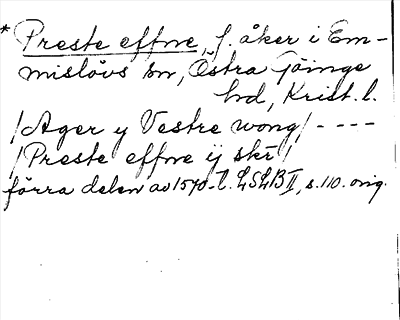 * Preste effne, f. åker i Em-
mislövs sn, Östra Göinge
hd, Krist. l.
/Ager y Vestre wong/ - - - -
/Preste effne ij skr/
förra delen av 1570-t. LSLB II, s. 110. orig.